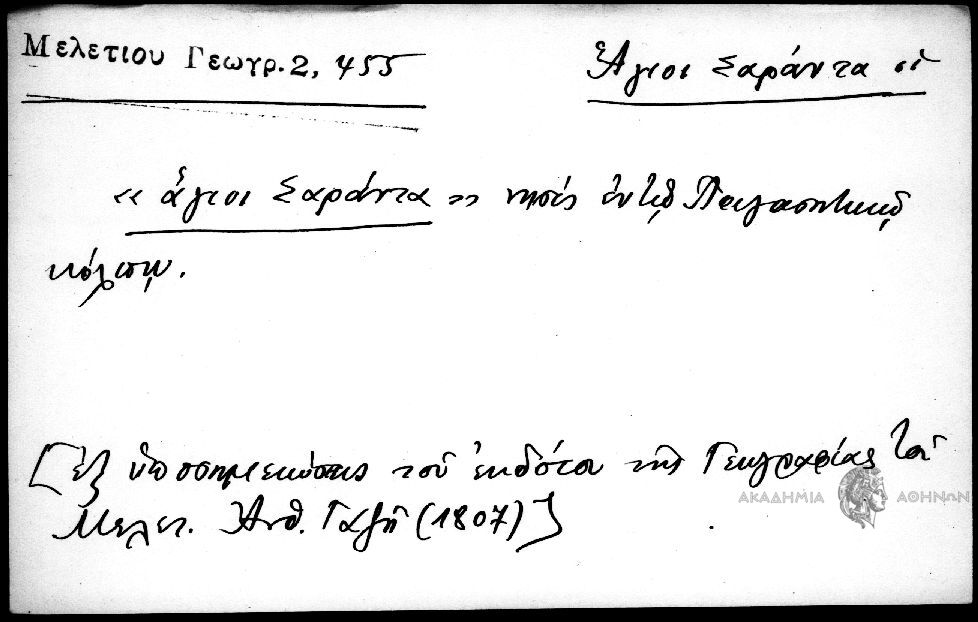 Μελετίου Γεωγρ. 2, 455
Ἅγιοι Σαράντα οἱ
« ἅγιοι Σαράντα » νησὶς ἐν τῷ Παγασητικῷ
κόλπῳ.
[ἐξ ὑποσημειώσεως τοῦ ἐκδότου τῆς Γεωγραφίας τοῦ
Μελετ. Ἀνθ. Γαζῆ (1807)]
ΑΚΑΔΗΜΙΑ ΑΘΗΝΩΝ